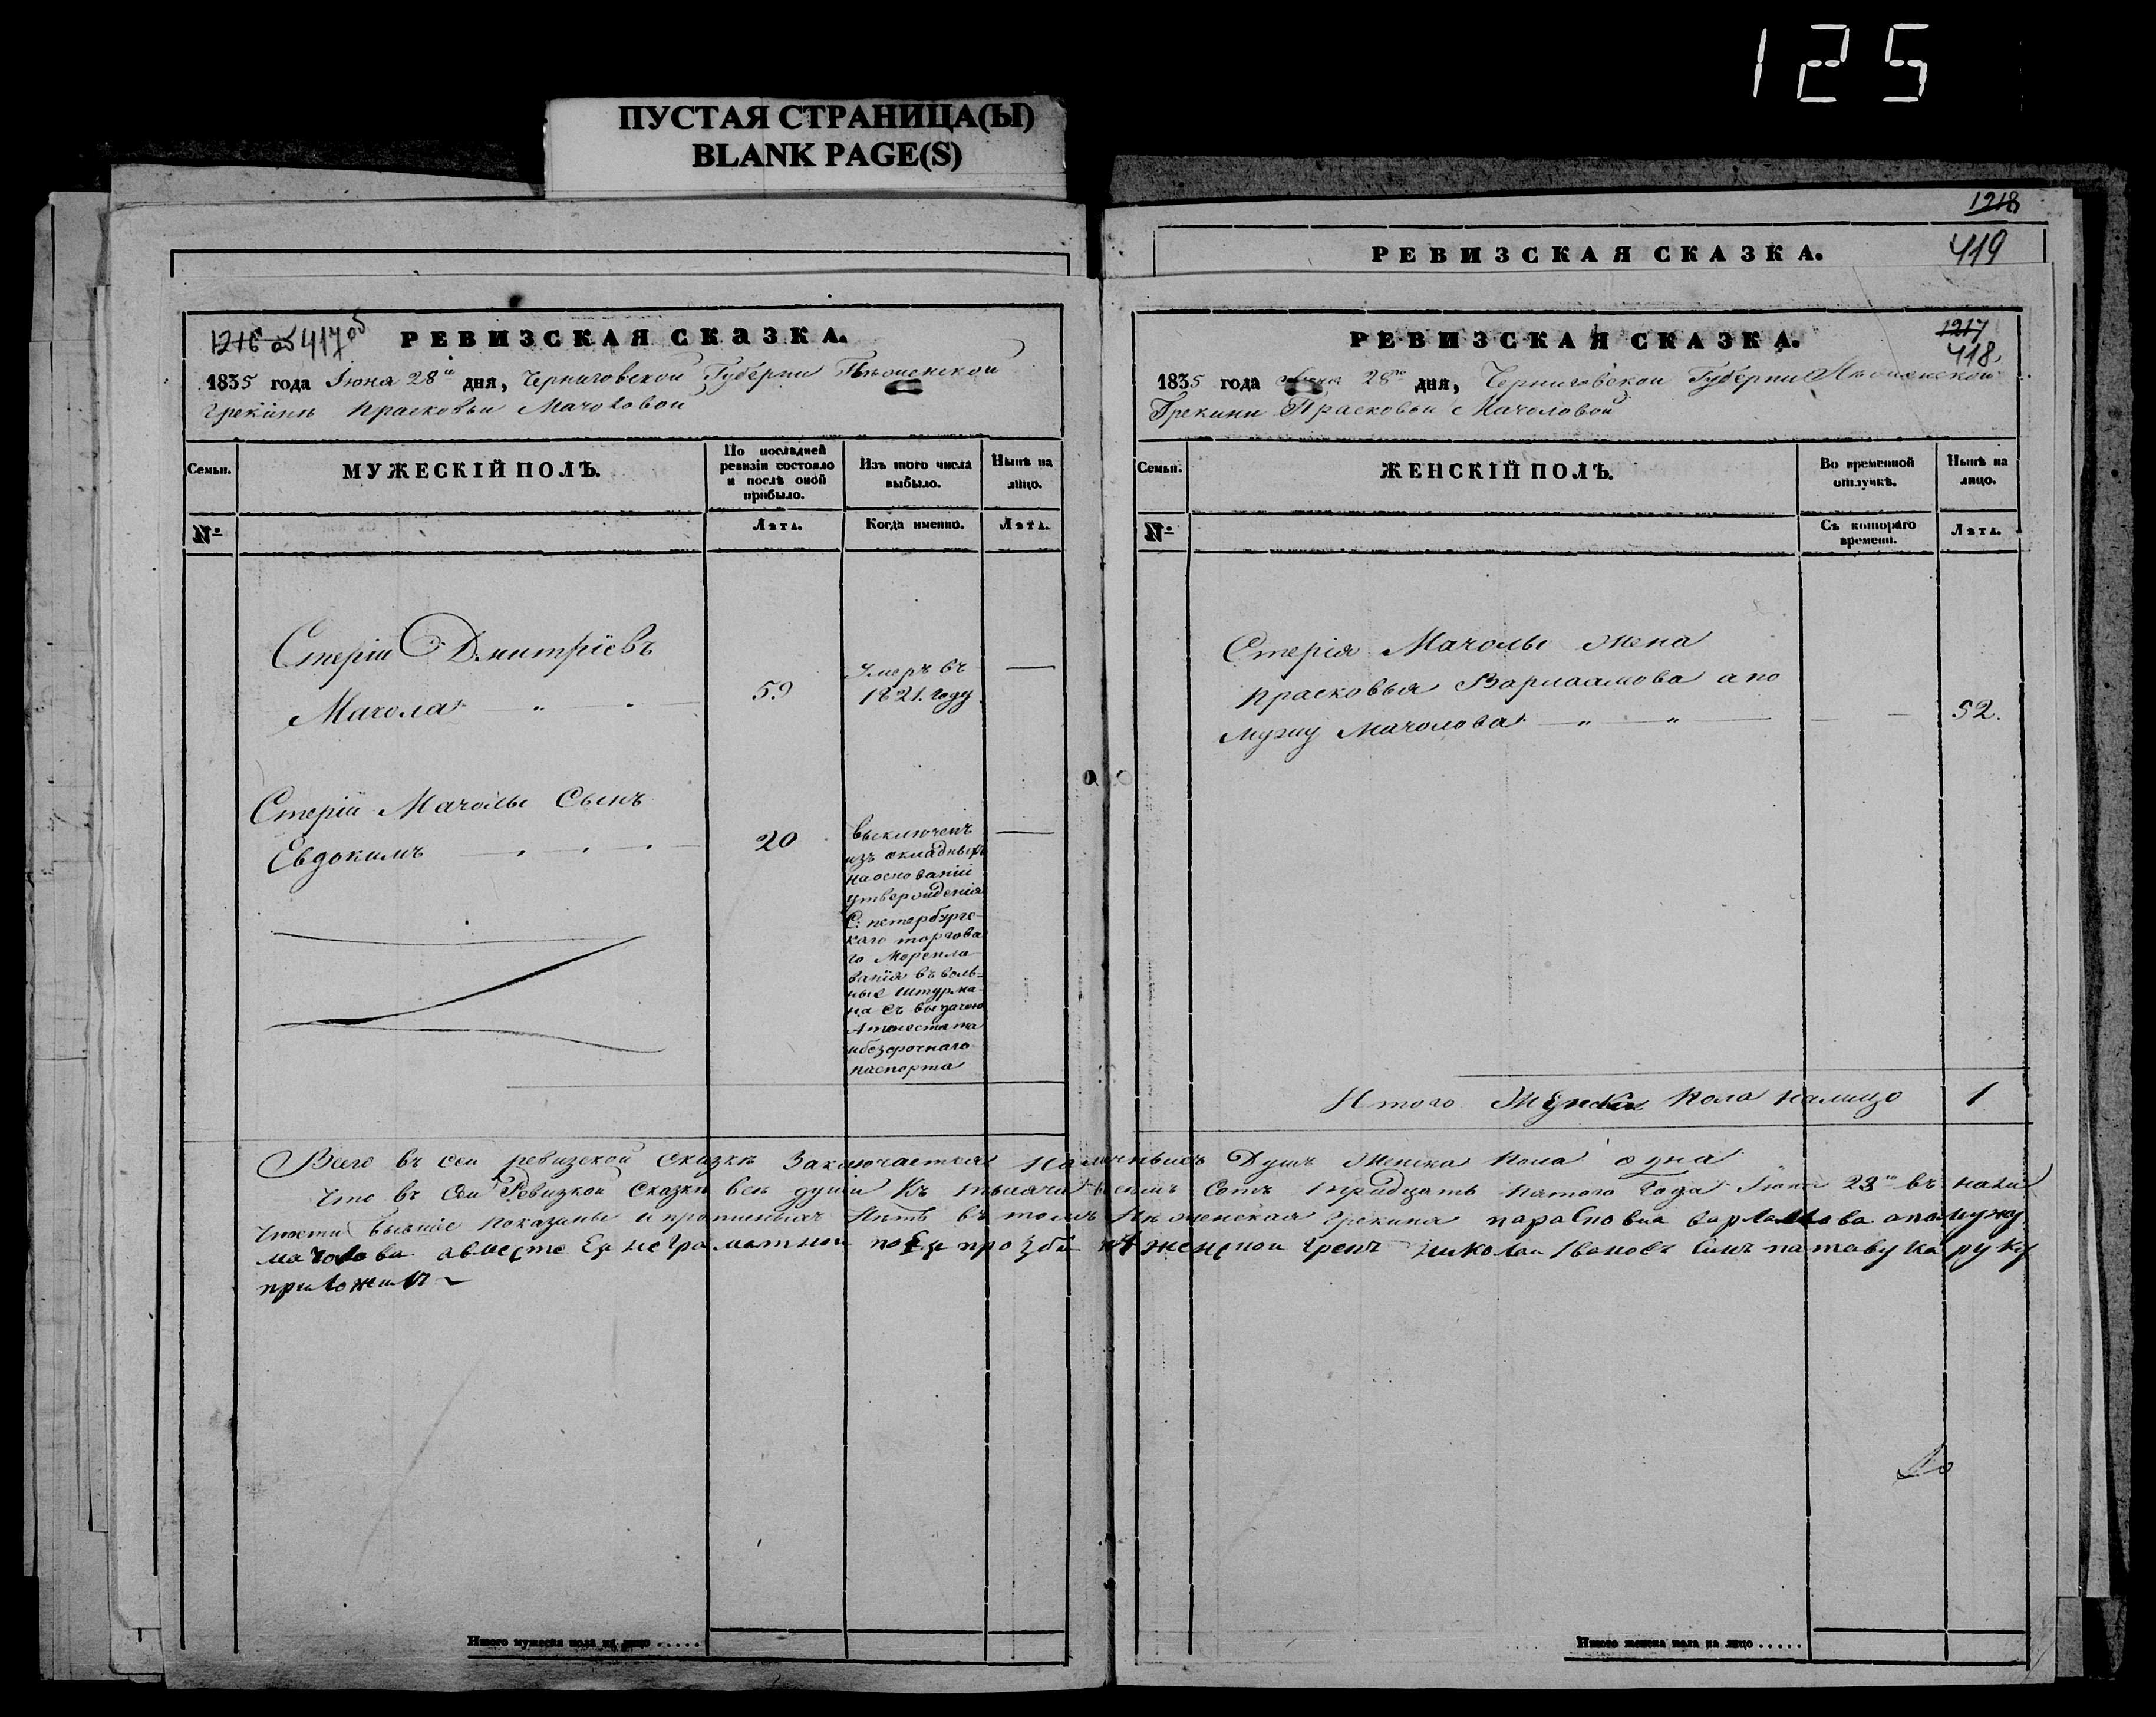 125
ПУСТАЯ СТРАНИЦА(Ы)
BLANK PAGE(S)
1218
РЕВИЗСКАЯ СКАЗКА.
419
1216 об 417 об
РЕВИЗСКАЯ СКАЗКА.
1835 года Июня 28го дня, Черниговской Губерніи Нѣженской
Грекини Прасковьи Мачоловой
Семьи.
МУЖЕСКІЙ ПОЛЪ.
По послѣдней ревизіи состояло и послѣ оной прибыло.
Изъ того числа выбыло.
Нынѣ на лицо.
№
Лѣта.
Когда именно.
Лѣта.
Стерій Дмитріевъ
Мачола
59
Умеръ въ
1821. году
Стерія Мачолы Сынъ
Евдокимъ
20
выключенъ
изъ окладныхъ
на основаніи
утвержденія
С: петербургс-
каго торгова
го Морепла-
ванія въ воль-
ные штурма-
на съ выдачею
Атестата
и безсрочнаго
паспорта
1217
418.
РЕВИЗСКАЯ СКАЗКА.
1835 года Июня 28го дня, Черниговской Губерніи Нѣженской
Грекини Прасковьи Мачоловой
Семьи.
ЖЕНСКІЙ ПОЛЪ.
Во временной отлучкѣ.
Нынѣ на лицо.
№
Съ котораго времени.
Лѣта.
Стерія Мачолы Жена
Прасковья Варлаамова а по
мужу Мачолова
52.
Итого Женска пола налицо 1
Всего въ сей ревизской сказкѣ заключается наличныхъ Душъ Женска пола одна
Что въ сей Ревизкой сказкѣ всѣ души къ тысяча восемь сотъ тридцать пятого Года Июня 28го въ нали
чности бывшіе показаны и прописныхъ Нѣтъ в томъ Нѣженская грекиня парасковиа варламова апомужу
мачолова авместо Ея неграматной поЕя прозби нѣженской грекъ николай Ивановъ синъ руку
приложилъ
Итого мужеска пола на лицо .....
Итого женска пола на лицо .....